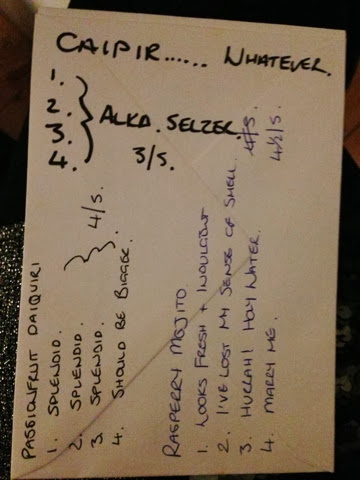 CAIPIR...... WHATEVER.
1.
2.
3.
4.
ALKA. SELZER.
3/5.
PASSIONFRUIT DAIQUIRI
1. SPLENDID.
2. SPLENDID.
3. SPLENDID.
4. SHOULD BE BIGGER.
4/5.
RASPERRY MOJITO
1. LOOKS FRESH + INDULGENT
2. I'VE LOST MY SENSE OF SMELL. 4/5.
3. HURRAH! HOLY WATER.
4. MARRY ME. 4½/5.